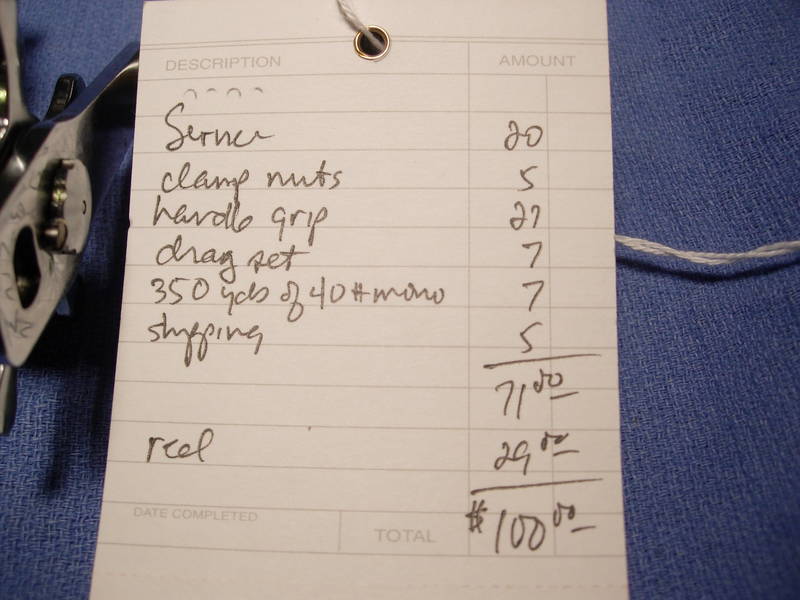 DESCRIPTION AMOUNT
Service 20
clamp nuts 5
handle grip 27
drag set 7
350 yds of 40# mono 7
shipping 5
71 00
reel 29 00
DATE COMPLETED
TOTAL $100 00